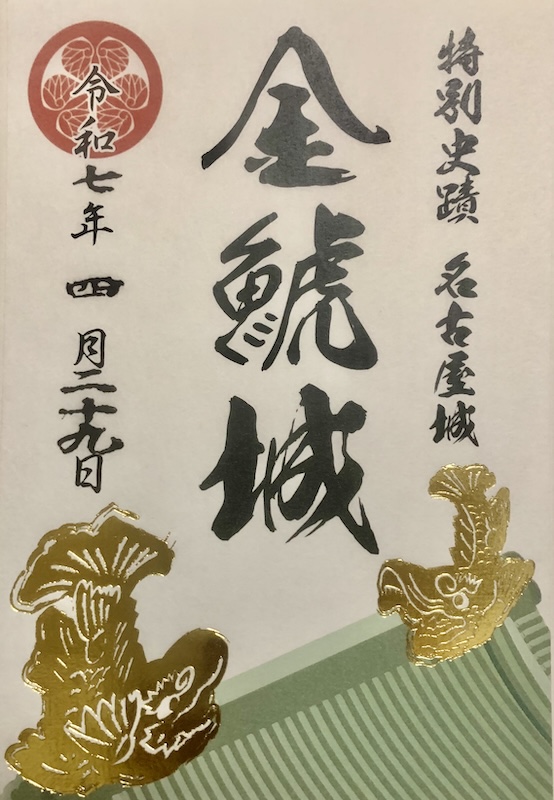 特別史蹟 名古屋城
金鯱城
令和七年 四月二十九日